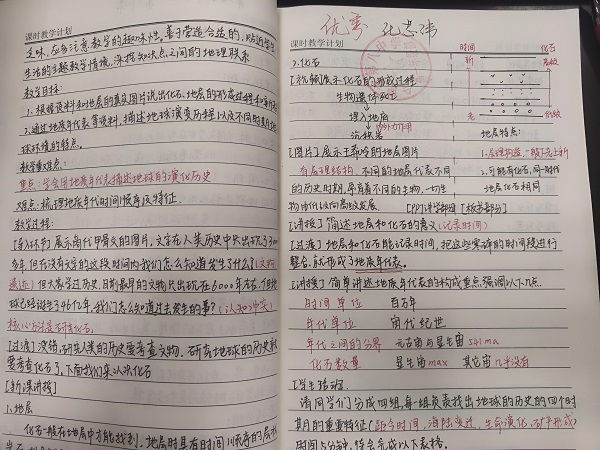 课时教学计划
乏味,应多注意教学的趣味性,善于营造合适的,贴近学生
生活的主题教学情境,深挖知识点之间的地理联系
教学目标:
1.根据资料和地层的真实图片说出化石、地层的形成过程和
2.通过地质年代表等资料,描述地球演变历程以及不同时期地
球环境的特点。
教学重难点:
重点:学会用地质年代表描述地球的演化历史
难点:梳理地质年代时间顺序及特征
教学过程:
[导入环节]展示商代甲骨文的图片,文字在人类历史中只出现了3000
多年,但在没有文字的这段时间内我们怎么知道发生了什么?(文物
遗迹)但大家学过历史,目前最早的文物只出现在6000年左右,但地
球已经诞生了46亿年,我们怎么知道过去发生的事?(认知冲突)
核心方法是研究化石。
[过渡]没错,研究人类的历史要考查文物,研究地球的历史就
要考查化石了,下面我们来认识化石
[新课讲授]
1.地层
化石一般在地层中才能找到,地层时具有时间顺序的层状
优秀
课时教学计划
2.化石
[视频展示化石的形成过程]
生物遗体死亡
埋入地底
沉积层
时间 化石
新 高级
老 低级
[图片]展示王希冷的地层图片
有层理结构,不同的地层代表不同
的历史时期,孕育着不同的生物,一切生
物由低级向高级发展
地层特点:
1.层理构造,一般下老上新
2.可能有化石,同一时代
地层化石相同
[PPT讲学部理] [板书部分]
[讲授]简述地层和化石的意义(记录时间)
[过渡]地层和化石能记录时间,把这些零碎的时间段进行
整合,就形成了地质年代表。
[讲授]简单讲述地质年代表的构成重点,强调以下几点.
时间单位 百万年
年代单位 宙代纪世
年代之间的分界 元古宙与显生宙541ma
化石数量 显生宙max 其它宙几乎没有
[学生活动]
请同学们分成四组,每一组负责找出地球的历史的四个时
期的重要特征(距今时间,海陆变迁,生命演化,矿产形成)
时间5分钟,待会完成以下表格.